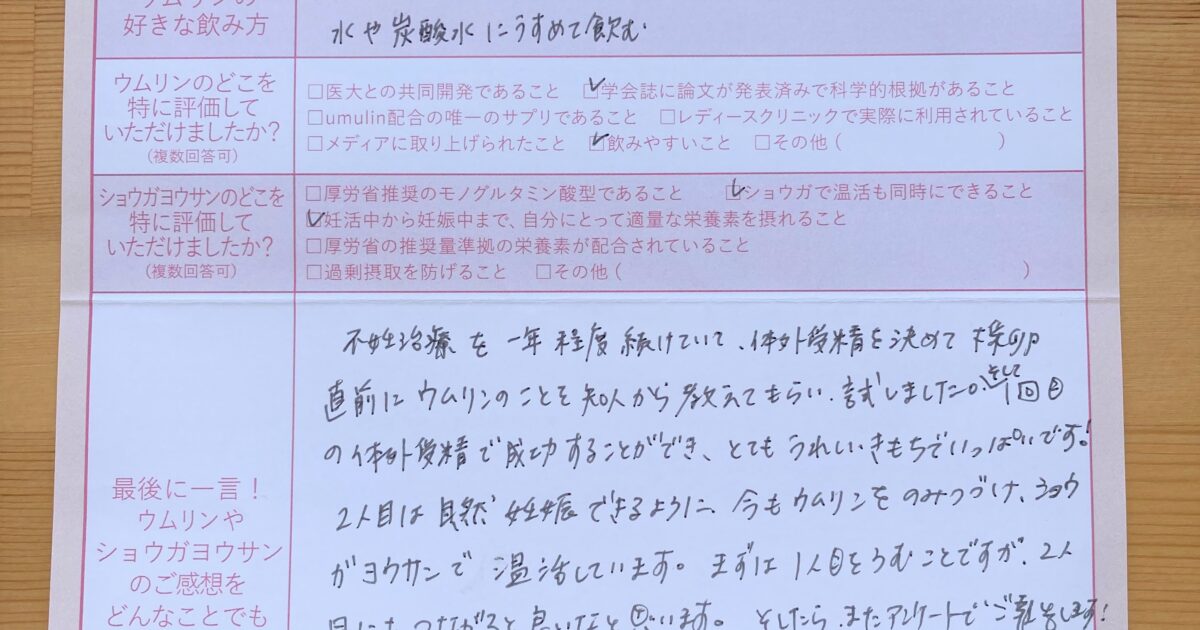 ウムリンの
好きな飲み方
水や炭酸水にうすめて飲む
ウムリンのどこを
特に評価して
いただけましたか?
(複数回答可)
□医大との共同開発であること □学会誌に論文が発表済みで科学的根拠があること
□umulin配合の唯一のサプリであること □レディースクリニックで実際に利用されていること
□メディアに取り上げられたこと □飲みやすいこと □その他 ( )
ショウガヨウサンのどこを
特に評価して
いただけましたか?
(複数回答可)
□厚労省推奨のモノグルタミン酸型であること □ショウガで温活も同時にできること
□妊活中から妊娠中まで、自分にとって適量な栄養素を摂れること
□厚労省の推奨量準拠の栄養素が配合されていること
□過剰摂取を防げること □その他 ( )
最後に一言!
ウムリンや
ショウガヨウサン
のご感想を
どんなことでも
不妊治療を一年程度続けていて、体外受精を決めて採卵
直前にウムリンのことを知人から教えてもらい、試しました。そして1回目
の体外受精で成功することができ、とてもうれしいきもちでいっぱいです!
2人目は自然妊娠できるように、今もウムリンをのみつづけ、ショウ
ガヨウサンで温活しています。まずは1人目をうむことですが、2人
目にもつながると良いなと思います。そしたら、またアンケートでご報告します!